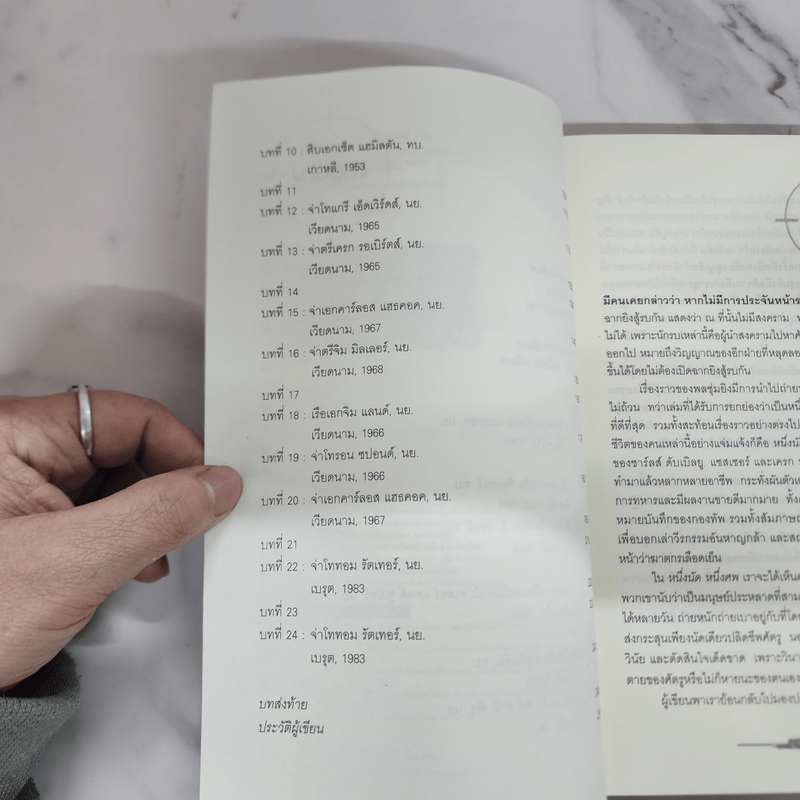 บทที่ 10 : สิบเอกเช็ต แฮมิลตัน, ทบ.
เกาหลี, 1953
บทที่ 11
บทที่ 12 : จ่าโทแกรี เอ็ดเวิร์ดส์, นย.
เวียดนาม, 1965
บทที่ 13 : จ่าตรีเครก รอเบิร์ตส์, นย.
เวียดนาม, 1965
บทที่ 14
บทที่ 15 : จ่าเอกคาร์ลอส แฮธคอค, นย.
เวียดนาม, 1967
บทที่ 16 : จ่าตรีจิม มิลเลอร์, นย.
เวียดนาม, 1968
บทที่ 17
บทที่ 18 : เรือเอกจิม แลนด์, นย.
เวียดนาม, 1966
บทที่ 19 : จ่าโทรอน ซปอนด์, นย.
เวียดนาม, 1966
บทที่ 20 : จ่าเอกคาร์ลอส แฮธคอค, นย.
เวียดนาม, 1967
บทที่ 21
บทที่ 22 : จ่าโททอม รัตเทอร์, นย.
เบรุต, 1983
บทที่ 23
บทที่ 24 : จ่าโททอม รัตเทอร์, นย.
เบรุต, 1983
บทส่งท้าย
ประวัติผู้เขียน
มีคนเคยกล่าวว่า หากไม่มีการประจันหน้าร
ฉากยิงสู้รบกัน แสดงว่า ณ ที่นั้นไม่มีสงคราม
ไม่ได้ เพราะนักรบเหล่านี้คือผู้นำสงครามไปหาศั
ออกไป หมายถึงวิญญาณของอีกฝ่ายที่หลุดลอ
ขึ้นได้โดยไม่ต้องเปิดฉากยิงสู้รบกัน
เรื่องราวของพลซุ่มยิงมีการนำไปถ่ายท
ไม่ถ้วน ทว่าเล่มที่ได้รับการยกย่องว่าเป็นหนึ่
ที่ดีที่สุด รวมทั้งสะท้อนเรื่องราวอย่างตรงไป
ชีวิตของคนเหล่านี้อย่างแจ่มแจ้งก็คือ หนึ่งนั
ของชาร์ลส์ ดับเบิลยู. แซสเซอร์ และเครก ร
ทำมาแล้วหลากหลายอาชีพ กระทั่งผันตัวเ
การทหารและมีผลงานขายดีมากมาย ทั้ง
หมายบันทึกของกองทัพ รวมทั้งสัมภาษณ์
เพื่อบอกเล่าวีรกรรมอันหาญกล้า และส
หน้าว่าฆาตกรเลือดเย็น
ใน หนึ่งนัด หนึ่งศพ เราจะได้เห็น
พวกเขานับว่าเป็นมนุษย์ประหลาดที่สาม
ได้หลายวัน ถ่ายหนักถ่ายเบาอยู่กับที่โด
ส่งกระสุนเพียงนัดเดียวปลิดชีพศัตรู
วินัย และตัดสินใจเด็ดขาด เพราะวินา
ตายของศัตรูหรือไม่ก็หายนะของตนเอง
ผู้เขียนพาเราย้อนกลับไปมองป